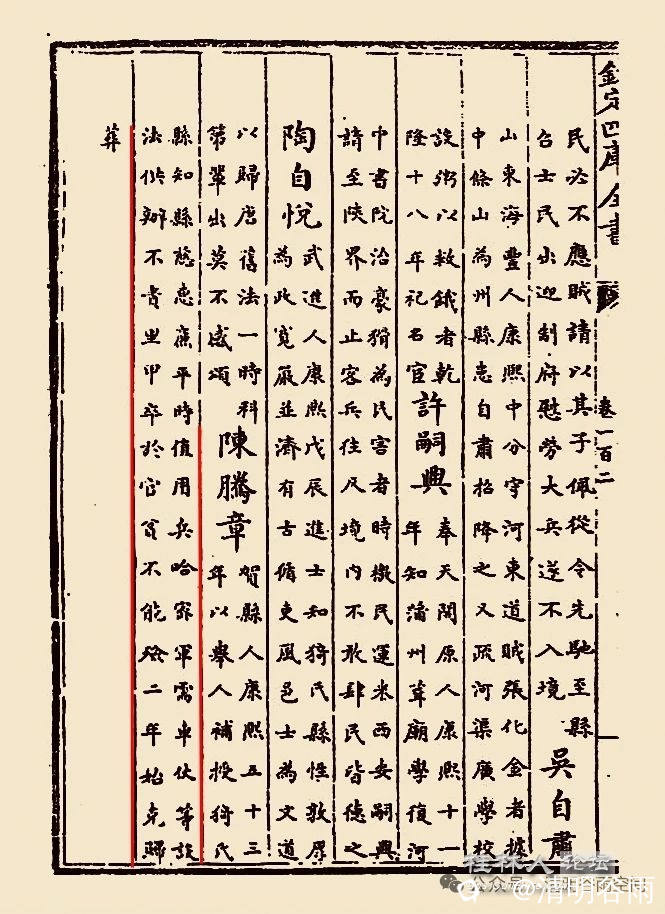 欽定四庫全書 卷一百二
民必不應賊請以其子佩從令先馳至縣
召士民出迎刮府慰勞大兵遂不入境
吳自肅
山東海豐人康熙中分守河東道賊張化金者據
中條山為州縣患自肅招降之又疏河渠廣學校
設粥以救餓者乾
隆十八年祀名宦
許嗣興
奉天開原人康熙十一
年知蒲州葺廟學復河
中書院治豪猾為民害者時檄民運米西安嗣興
請至陝界而止客兵住及境內不敢肆民皆德之
陶自悅
武進人康熙戊辰進士知猗氏縣性敦厚
為政寬嚴並濟有古循吏風邑士為文道
以歸唐舊法一時科
第輩出莫不感頌
陳騰章
賀縣人康熙五十三
年以舉人補授猗氏
縣知縣慈惠廉平時值用兵哈密軍需車仗等設
法供辦不責里甲卒於官貧不能殮二年始克歸
葬
桂林人论坛
@清明谷雨